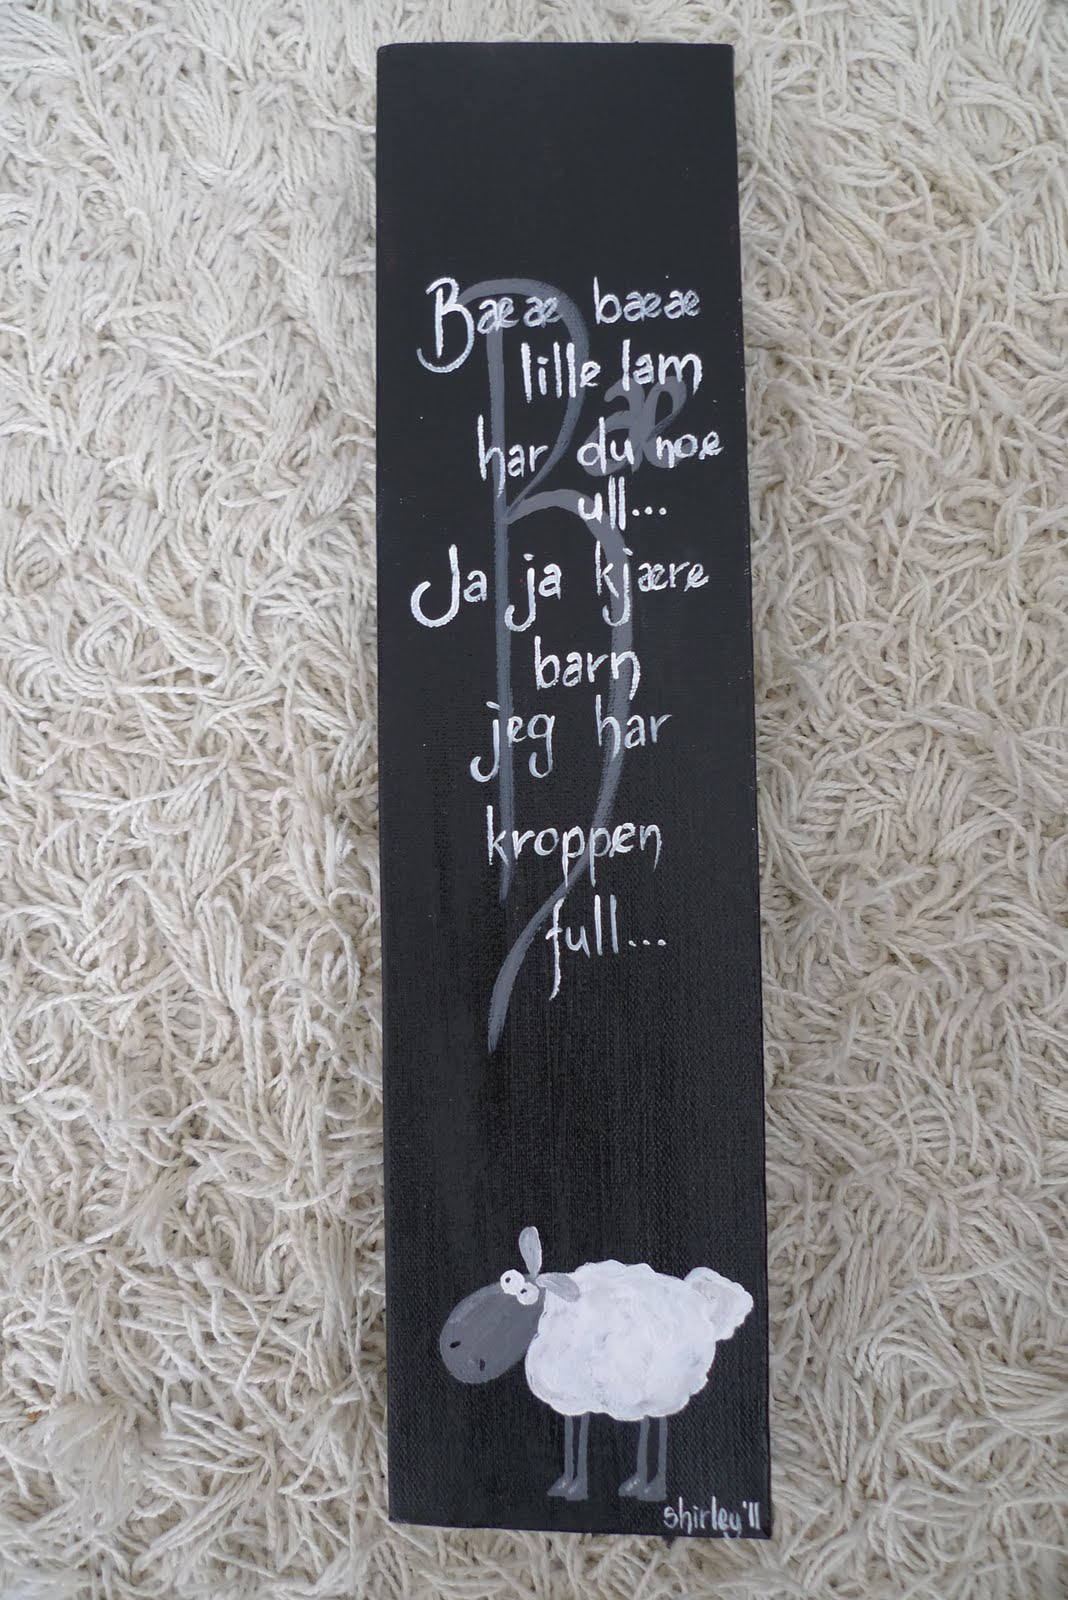 Bææ bææ
lille lam
har du noe
ull...
Ja ja kjære
barn
jeg har
kroppen
full...
Bæ
shirley'11